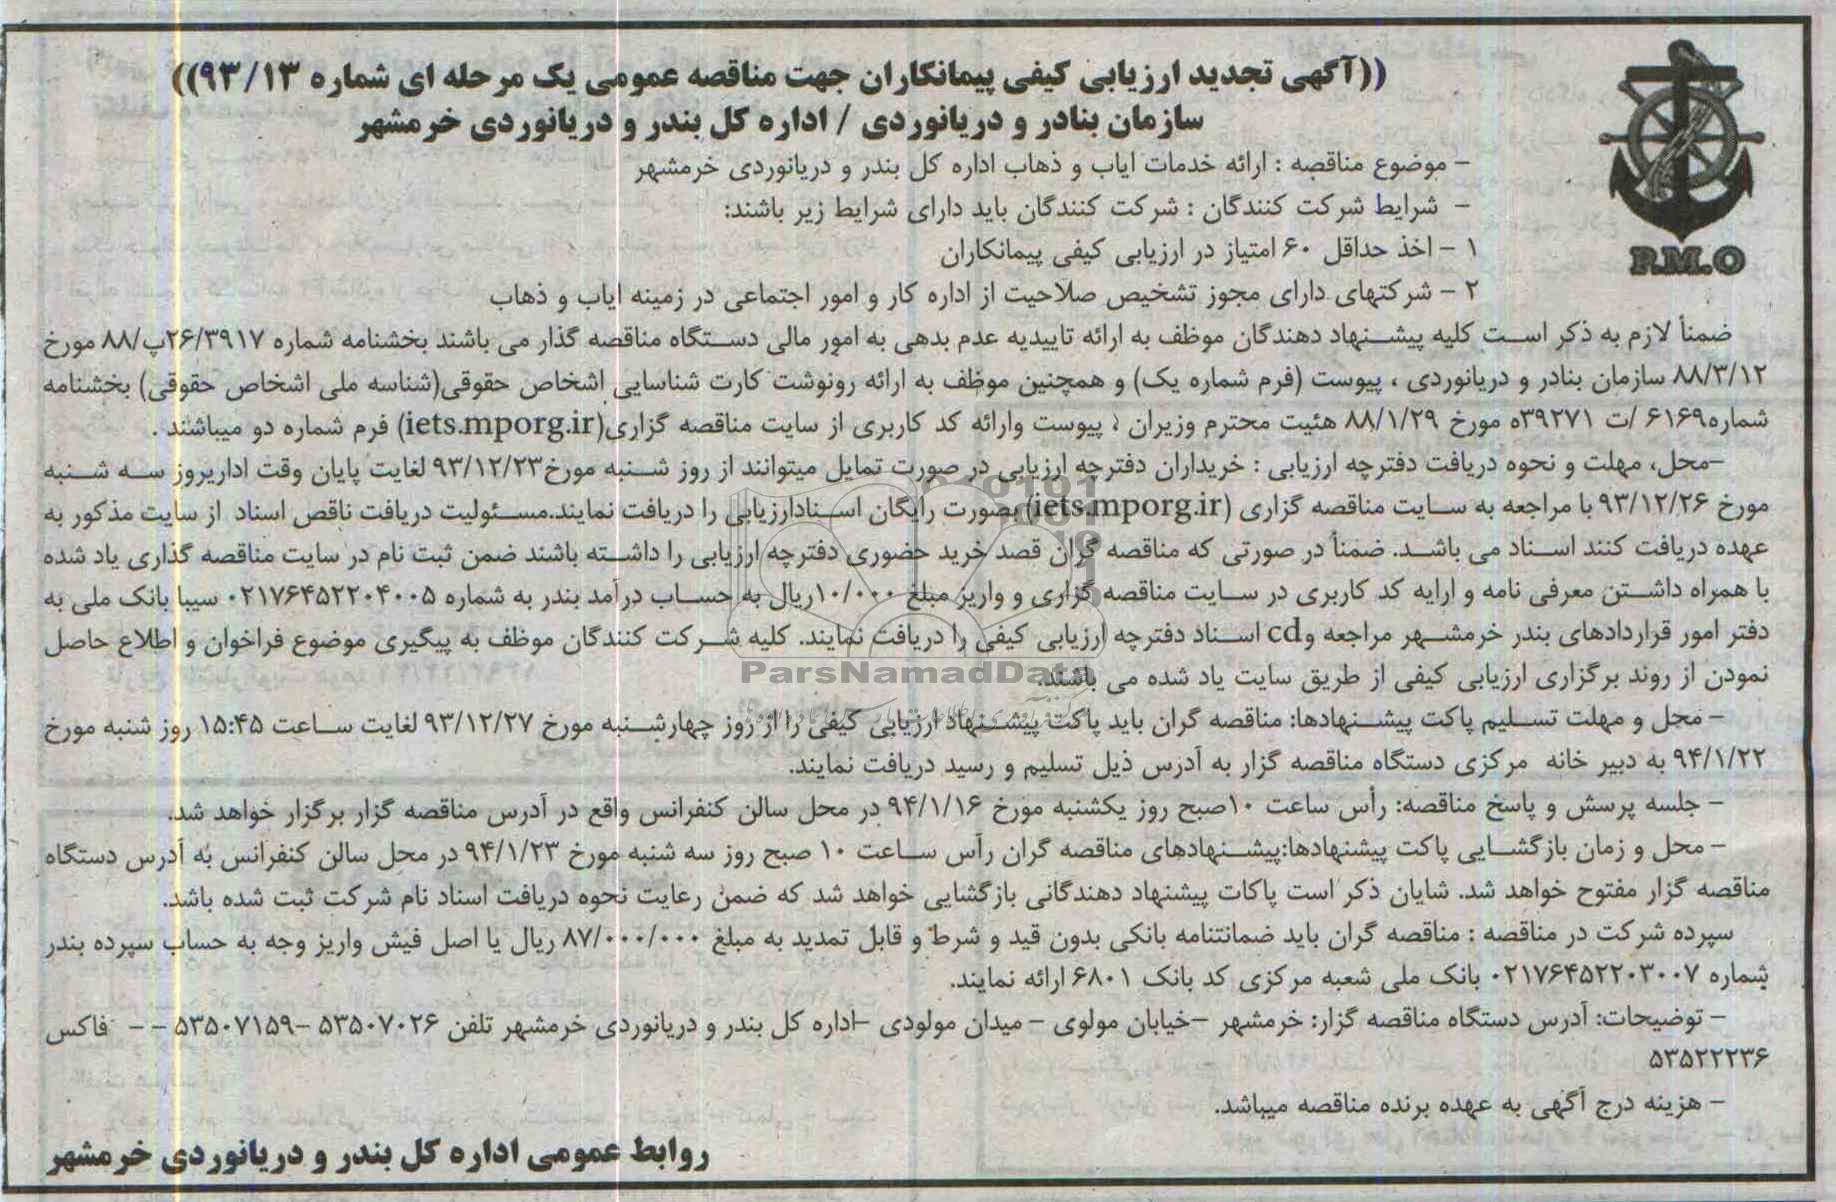 ((آگهی تجدید ارزیابی کیفی پیمانکاران جهت مناقصه عمومی یک مرحله ای شماره ۹۳/۱۳))
سازمان بنادر و دریانوردی / اداره کل بندر و دریانوردی خرمشهر
P.M.O
- موضوع مناقصه : ارائه خدمات ایاب و ذهاب اداره کل بندر و دریانوردی خرمشهر
- شرایط شرکت کنندگان : شرکت کنندگان باید دارای شرایط زیر باشند:
۱ - اخذ حداقل ۶۰ امتیاز در ارزیابی کیفی پیمانکاران
۲ - شرکتهای دارای مجوز تشخیص صلاحیت از اداره کار و امور اجتماعی در زمینه ایاب و ذهاب
ضمناً لازم به ذکر است کلیه پیشنهاد دهندگان موظف به ارائه تاییدیه عدم بدهی به امور مالی دستگاه مناقصه گذار می باشند بخشنامه شماره ۲۶/۳۹۱۷پ/۸۸ مورخ
۸۸/۳/۱۲ سازمان بنادر و دریانوردی ، پیوست (فرم شماره یک) و همچنین موظف به ارائه رونوشت کارت شناسایی اشخاص حقوقی(شناسه ملی اشخاص حقوقی) بخشنامه
شماره۶۱۶۹ /ت ۳۹۲۷۱ه مورخ ۸۸/۱/۲۹ هئیت محترم وزیران ، پیوست وارائه کد کاربری از سایت مناقصه گزاری(iets.mporg.ir) فرم شماره دو میباشند .
-محل، مهلت و نحوه دریافت دفترچه ارزیابی : خریداران دفترچه ارزیابی در صورت تمایل میتوانند از روز شنبه مورخ۹۳/۱۲/۲۳ لغایت پایان وقت اداریروز سه شنبه
مورخ ۹۳/۱۲/۲۶ با مراجعه به سایت مناقصه گزاری (iets.mporg.ir) بصورت رایگان اسنادارزیابی را دریافت نمایند.مسئولیت دریافت ناقص اسناد از سایت مذکور به
عهده دریافت کنند اسناد می باشد. ضمناً در صورتی که مناقصه گران قصد خرید حضوری دفترچه ارزیابی را داشته باشند ضمن ثبت نام در سایت مناقصه گذاری یاد شده
با همراه داشتن معرفی نامه و ارایه کد کاربری در سایت مناقصه گزاری و واریز مبلغ ۱۰/۰۰۰ریال به حساب درآمد بندر به شماره ۰۲۱۷۶۴۵۲۲۰۴۰۰۵ سیبا بانک ملی به
دفتر امور قراردادهای بندر خرمشهر مراجعه وcd اسناد دفترچه ارزیابی کیفی را دریافت نمایند. کلیه شرکت کنندگان موظف به پیگیری موضوع فراخوان و اطلاع حاصل
نمودن از روند برگزاری ارزیابی کیفی از طریق سایت یاد شده می باشند.
ParsNamadData
- محل و مهلت تسلیم پاکت پیشنهادها: مناقصه گران باید پاکت پیشنهاد ارزیابی کیفی را از روز چهارشنبه مورخ ۹۳/۱۲/۲۷ لغایت ساعت ۱۵:۴۵ روز شنبه مورخ
۹۴/۱/۲۲ به دبیر خانه مرکزی دستگاه مناقصه گزار به آدرس ذیل تسلیم و رسید دریافت نمایند.
- جلسه پرسش و پاسخ مناقصه: رأس ساعت ۱۰صبح روز یکشنبه مورخ ۹۴/۱/۱۶ در محل سالن کنفرانس واقع در آدرس مناقصه گزار برگزار خواهد شد.
- محل و زمان بازگشایی پاکت پیشنهادها:پیشنهادهای مناقصه گران رآس ساعت ۱۰ صبح روز سه شنبه مورخ ۹۴/۱/۲۳ در محل سالن کنفرانس به آدرس دستگاه
مناقصه گزار مفتوح خواهد شد. شایان ذکر است پاکات پیشنهاد دهندگانی بازگشایی خواهد شد که ضمن رعایت نحوه دریافت اسناد نام شرکت ثبت شده باشد.
سپرده شرکت در مناقصه : مناقصه گران باید ضمانتنامه بانکی بدون قید و شرط و قابل تمدید به مبلغ ۸۷/۰۰۰/۰۰۰ ریال یا اصل فیش واریز وجه به حساب سپرده بندر
شماره ۰۲۱۷۶۴۵۲۲۰۳۰۰۷ بانک ملی شعبه مرکزی کد بانک ۶۸۰۱ ارائه نمایند.
- توضیحات: آدرس دستگاه مناقصه گزار: خرمشهر -خیابان مولوی - میدان مولودی -اداره کل بندر و دریانوردی خرمشهر تلفن ۵۳۵۰۷۰۲۶ -۵۳۵۰۷۱۵۹ - - فاکس
۵۳۵۲۲۲۳۶
- هزینه درج آگهی به عهده برنده مناقصه میباشد.
روابط عمومی اداره کل بندر و دریانوردی خرمشهر